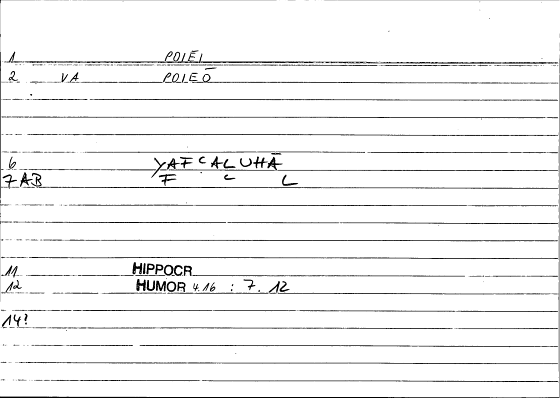 1 POIEI
2 VA POIEŌ
6 YAFCALUHĀ
7AB F C L
11 HIPPOCR
12 HUMOR 4.16 : 7. 12
14?